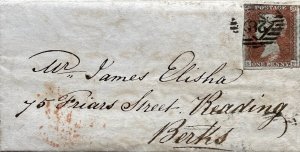 POSTAGE
ONE PENNY
Mr. James Elisha
75 Friars Street Reading
Berks